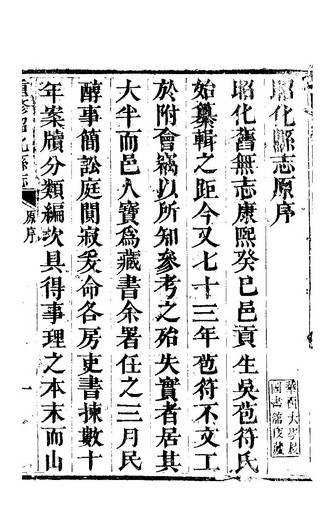 昭化縣志原序
昭化舊無志康熙癸巳邑貢生吳苞符氏
始纂輯之距今又七十三年苞符不文工
於附會竊以所知參考之殆失實者居其
大半而邑人寶為藏書余署任之三月民
醇事簡訟庭閴寂爰命各房吏書揀數十
年案牘分類編次具得事理之本末而山
原序
一
華西大學校
圖書舘庋藏